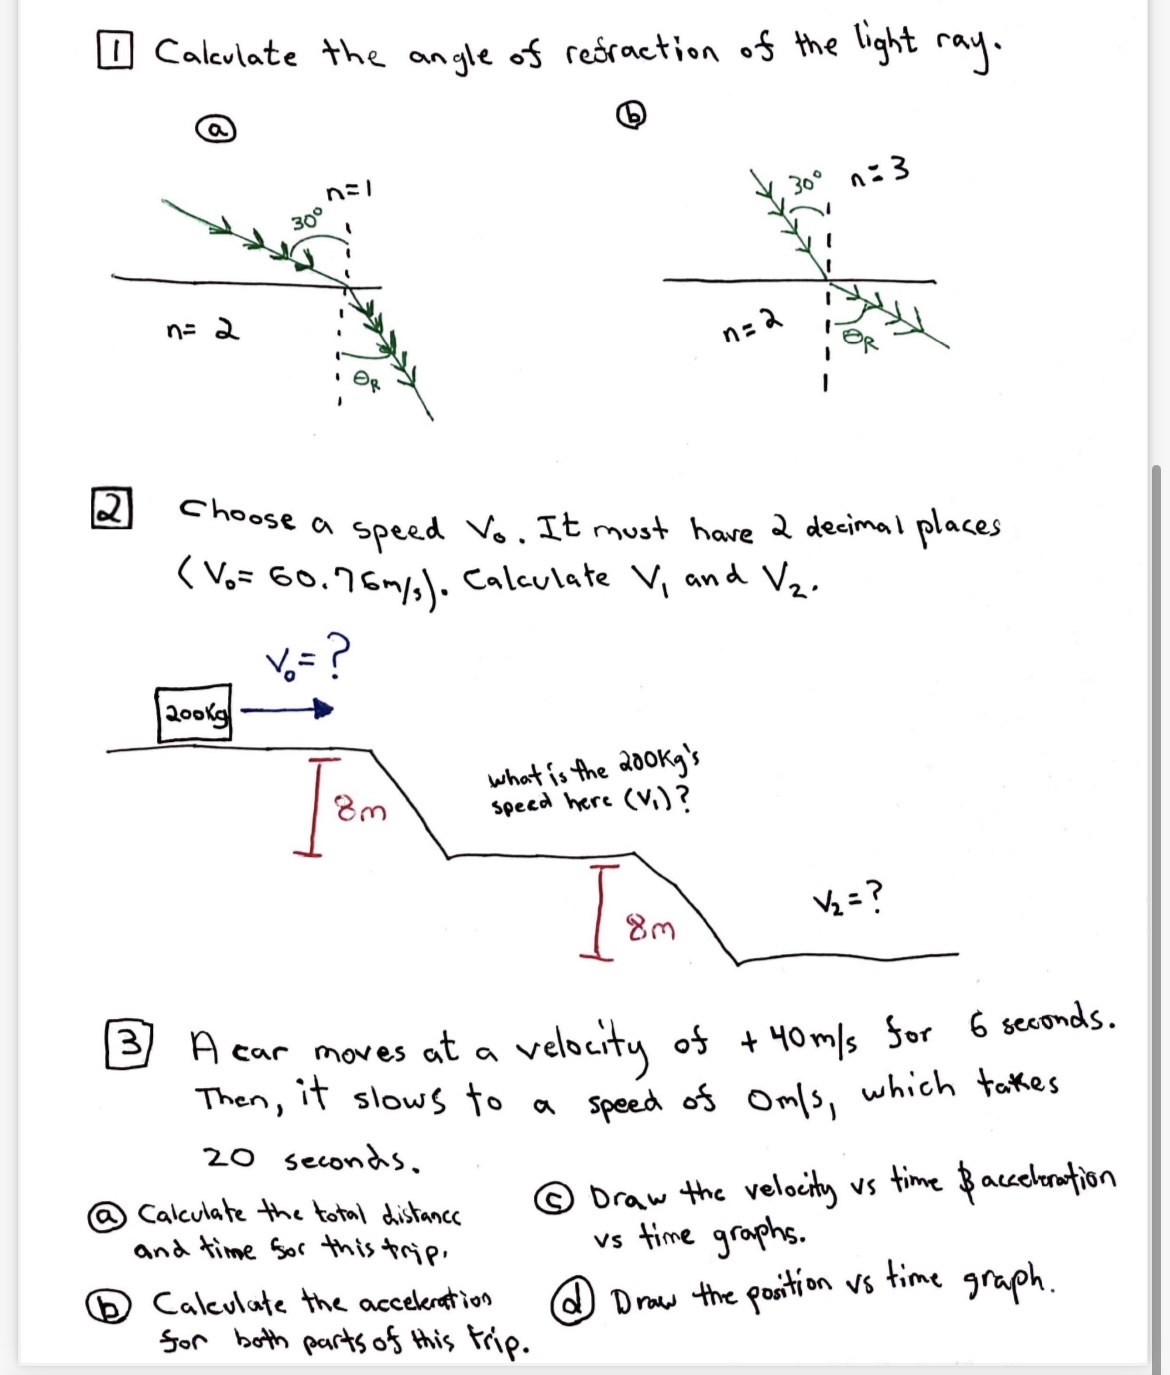 1 Calculate the angle of refraction of the light ray.
a
b
n=1
30°
n= 2
θR
30°
n=3
n=2
θR
2 Choose a speed V₀. It must have 2 decimal places
(V₀= 60.75m/s). Calculate V₁ and V₂.
V₀=?
200Kg
8m
what is the 200Kg's
speed here (V₁)?
8m
V₂=?
3 A car moves at a velocity of +40m/s for 6 seconds.
Then, it slows to a speed of 0m/s, which takes
20 seconds.
a Calculate the total distance
and time for this trip.
b Calculate the acceleration
for both parts of this trip.
c Draw the velocity vs time & acceleration
vs time graphs.
d Draw the position vs time graph.